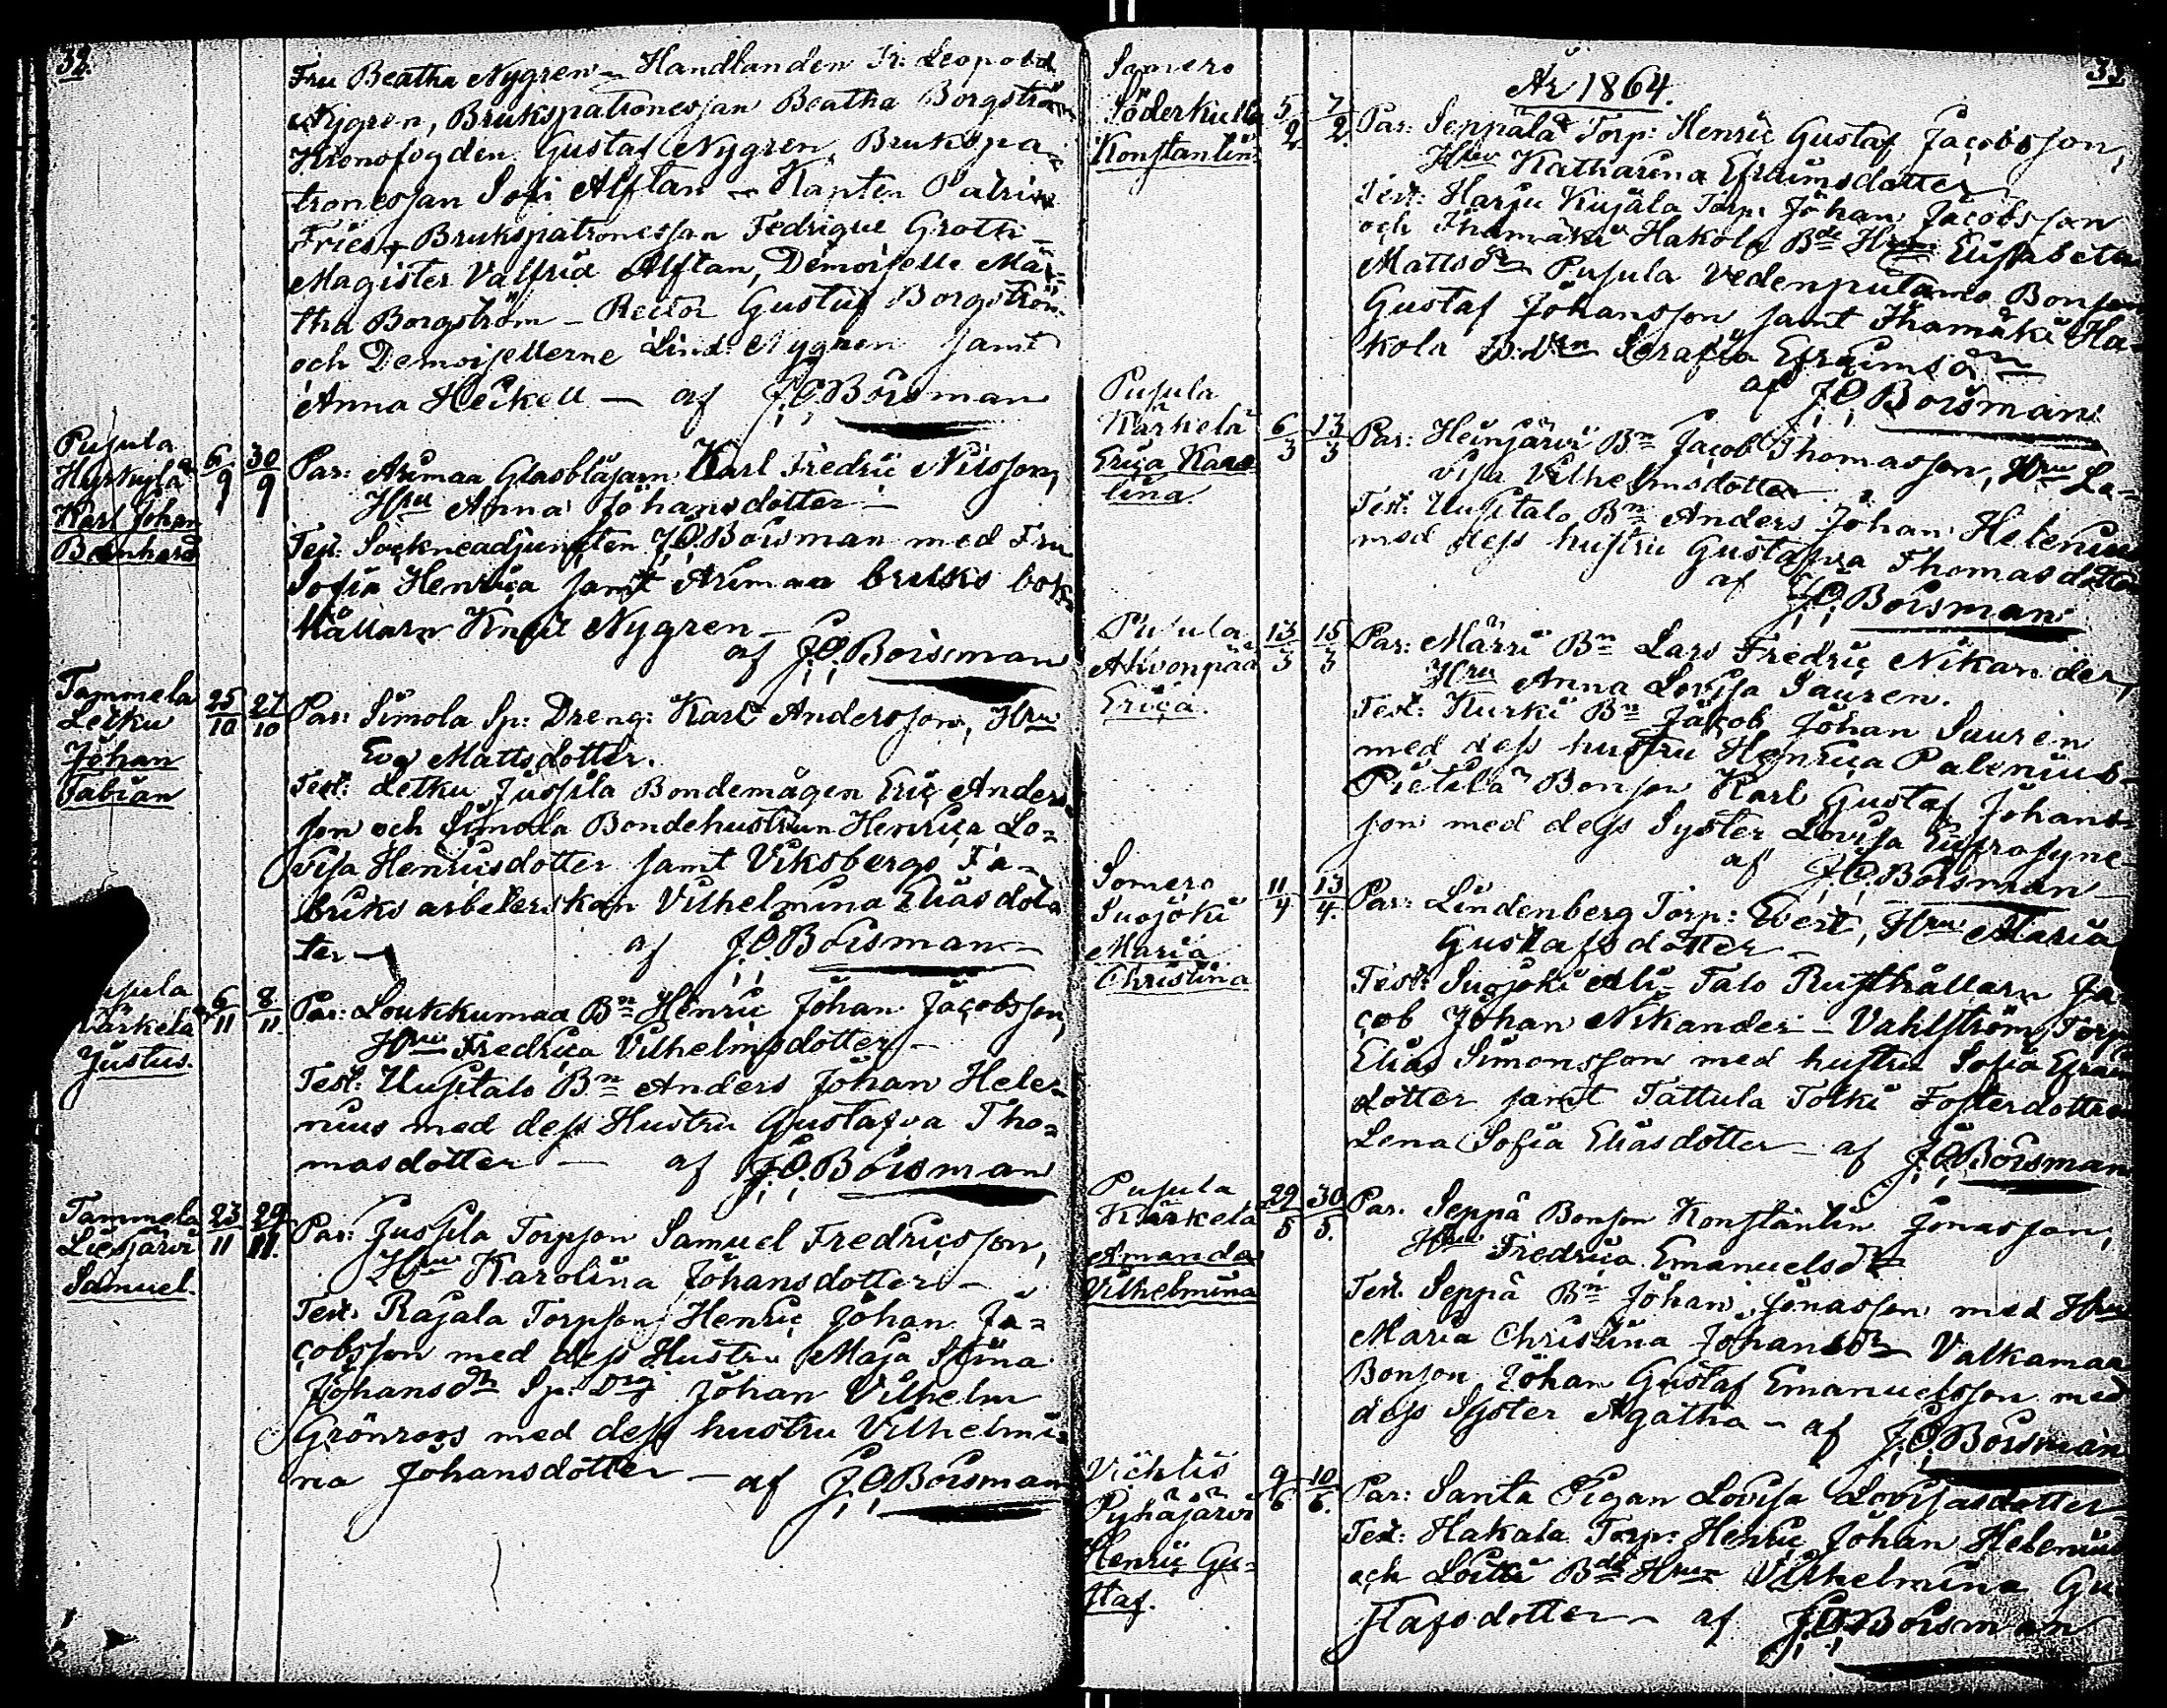 32.
Fru Beatha Nygren – Handlanden Fr: Leopold
Nygren, Brukspatronessan Beatha Borgström
Kronofogden Gustaf Nygren, Brukspa-
tronessan Sofi Alftan – Kapten Patrik
Fries – Brukspatronessan Fedrique Groth –
Magister Valfrid Alftan, Demoiselle Mar-
tha Borgström – Rector Gustaf Borgström
och Demoisellerne Lind: Nygren samt
Anna Heikell – af J.O. Boisman
Pusula
Hyrkylä
Karl Johan
Bernhard
6/9 30/9
Par: Arimaa Glasblåsarn Karl Fredric Nilsson,
Hru Anna Johansdotter –
Test: Sockneadjuncten J.O. Boisman med Fru
Sofia Henrica samt Arimaa bruks bok-
hållarn Knut Nygren –
af J.O. Boisman
Tammela
Letku
Johan
Fabian
25/10 27/10
Par: Simola Sp: Dreng: Karl Andersson, Hru
Eva Mattsdotter.
Test: Letku Jussila Bondemågen Eric Anders-
son och Simola Bondehustrun Henrica Lo-
visa Henricsdotter samt Viksbergs Fa-
briks arbeterskan Vilhelmina Eliasdot-
ter – af J.O. Boisman
usula
ärkelä
Justus.
6/11 8/11.
Par: Loukkumaa Bn Henric Johan Jacobsson,
Hru Fredrica Vilhelmsdotter –
Test: Uusitalo Bn Anders Johan Hele-
nius med dess Hustru Gustafva Tho-
masdotter – af J.O. Boisman
Tammela
Liesjärvi
Samuel.
23/11 29/11.
Par: Jussila Torpson Samuel Fredricsson,
Hru Karolina Johansdotter –
Test: Rajala Torpson Henric Johan Ja-
cobsson med dess Hustru Maja Stina
Johansdtr Sp: Drg Johan Vilhelm
Grönroos med dess hustru Vilhelmi-
na Johansdotter – af J.O. Boisman
År 1864.
Somero
Söderkulla
Konstantin
5/2 7/2.
Par: Seppälä Torp: Henric Gustaf Jacobsson,
Hru Katharina Efraimsdotter
Test: Harju Kujala Torp: Johan Jacobsson
och Ihamäki Hakola Bde Hrun Elisabeta
Mattsdtr Pusula Vedenputama Bonson
Gustaf Johansson samt Ihamäki Ha-
kola Serafia Efraimsdtr
af J.O. Boisman
Pusula
Kärkelä
Erica Karo-
lina
6/3 13/3
Par: Heinjärvi Bn Jacob Thomasson, Hru Lo-
visa Vilhelmsdotter
Test: Uusitalo Bn Anders Johan Helenius
med dess hustru Gustafva Thomasdotter
af J.O. Boisman
Pusula
Ahvonpää
Erica.
13/3 15/3
Par: Märri Bn Lars Fredric Nikander,
Hru Anna Lovisa Sauren.
Test: Kurki Bn Jacob Johan Sauren
med dess hustru Henrica Palenius –
Pietilä Bonson Karl Gustaf Johans-
son med dess Syster Lovisa Eufrosyne –
af J.O. Boisman
Somero
Suojoki
Maria
Christina
11/4 13/4.
Par: Lindenberg Torp: Evert, Hru Maria
Gustafsdotter –
Test: Suojoki Ali-Talo Rusthållarn Ja-
cob Johan Nikander – Vahlström Torp:
Elias Simonsson med hustru Sofia Efraims
dotter samt Tattula Tolki Fosterdottren
Lena Sofia Eliasdotter – af J.O. Boisman
Pusula
Kärkelä
Amanda
Vilhelmina
29/5 30/5.
Par. Seppä Bonson Konstantin Jonasson,
Hru Fredrica Emanuelsdtr
Test. Seppä Bn Johan Jonasson med Hru
Maria Christina Johansdtr Valkamaa
Bonson Johan Gustaf Emanuelsson med
dess Syster Agatha – af J.O. Boisman
Vichtis
Pyhäjärvi
Henric Gu-
staf.
9/6 10/6.
Par: Santa Pigan Lovisa Lovisasdotter
Test: Hakala Torp: Henric Johan Helenius
och Loitti Bde Hrun Vilhelmina Gu-
stafsdotter – af J.O. Boisman